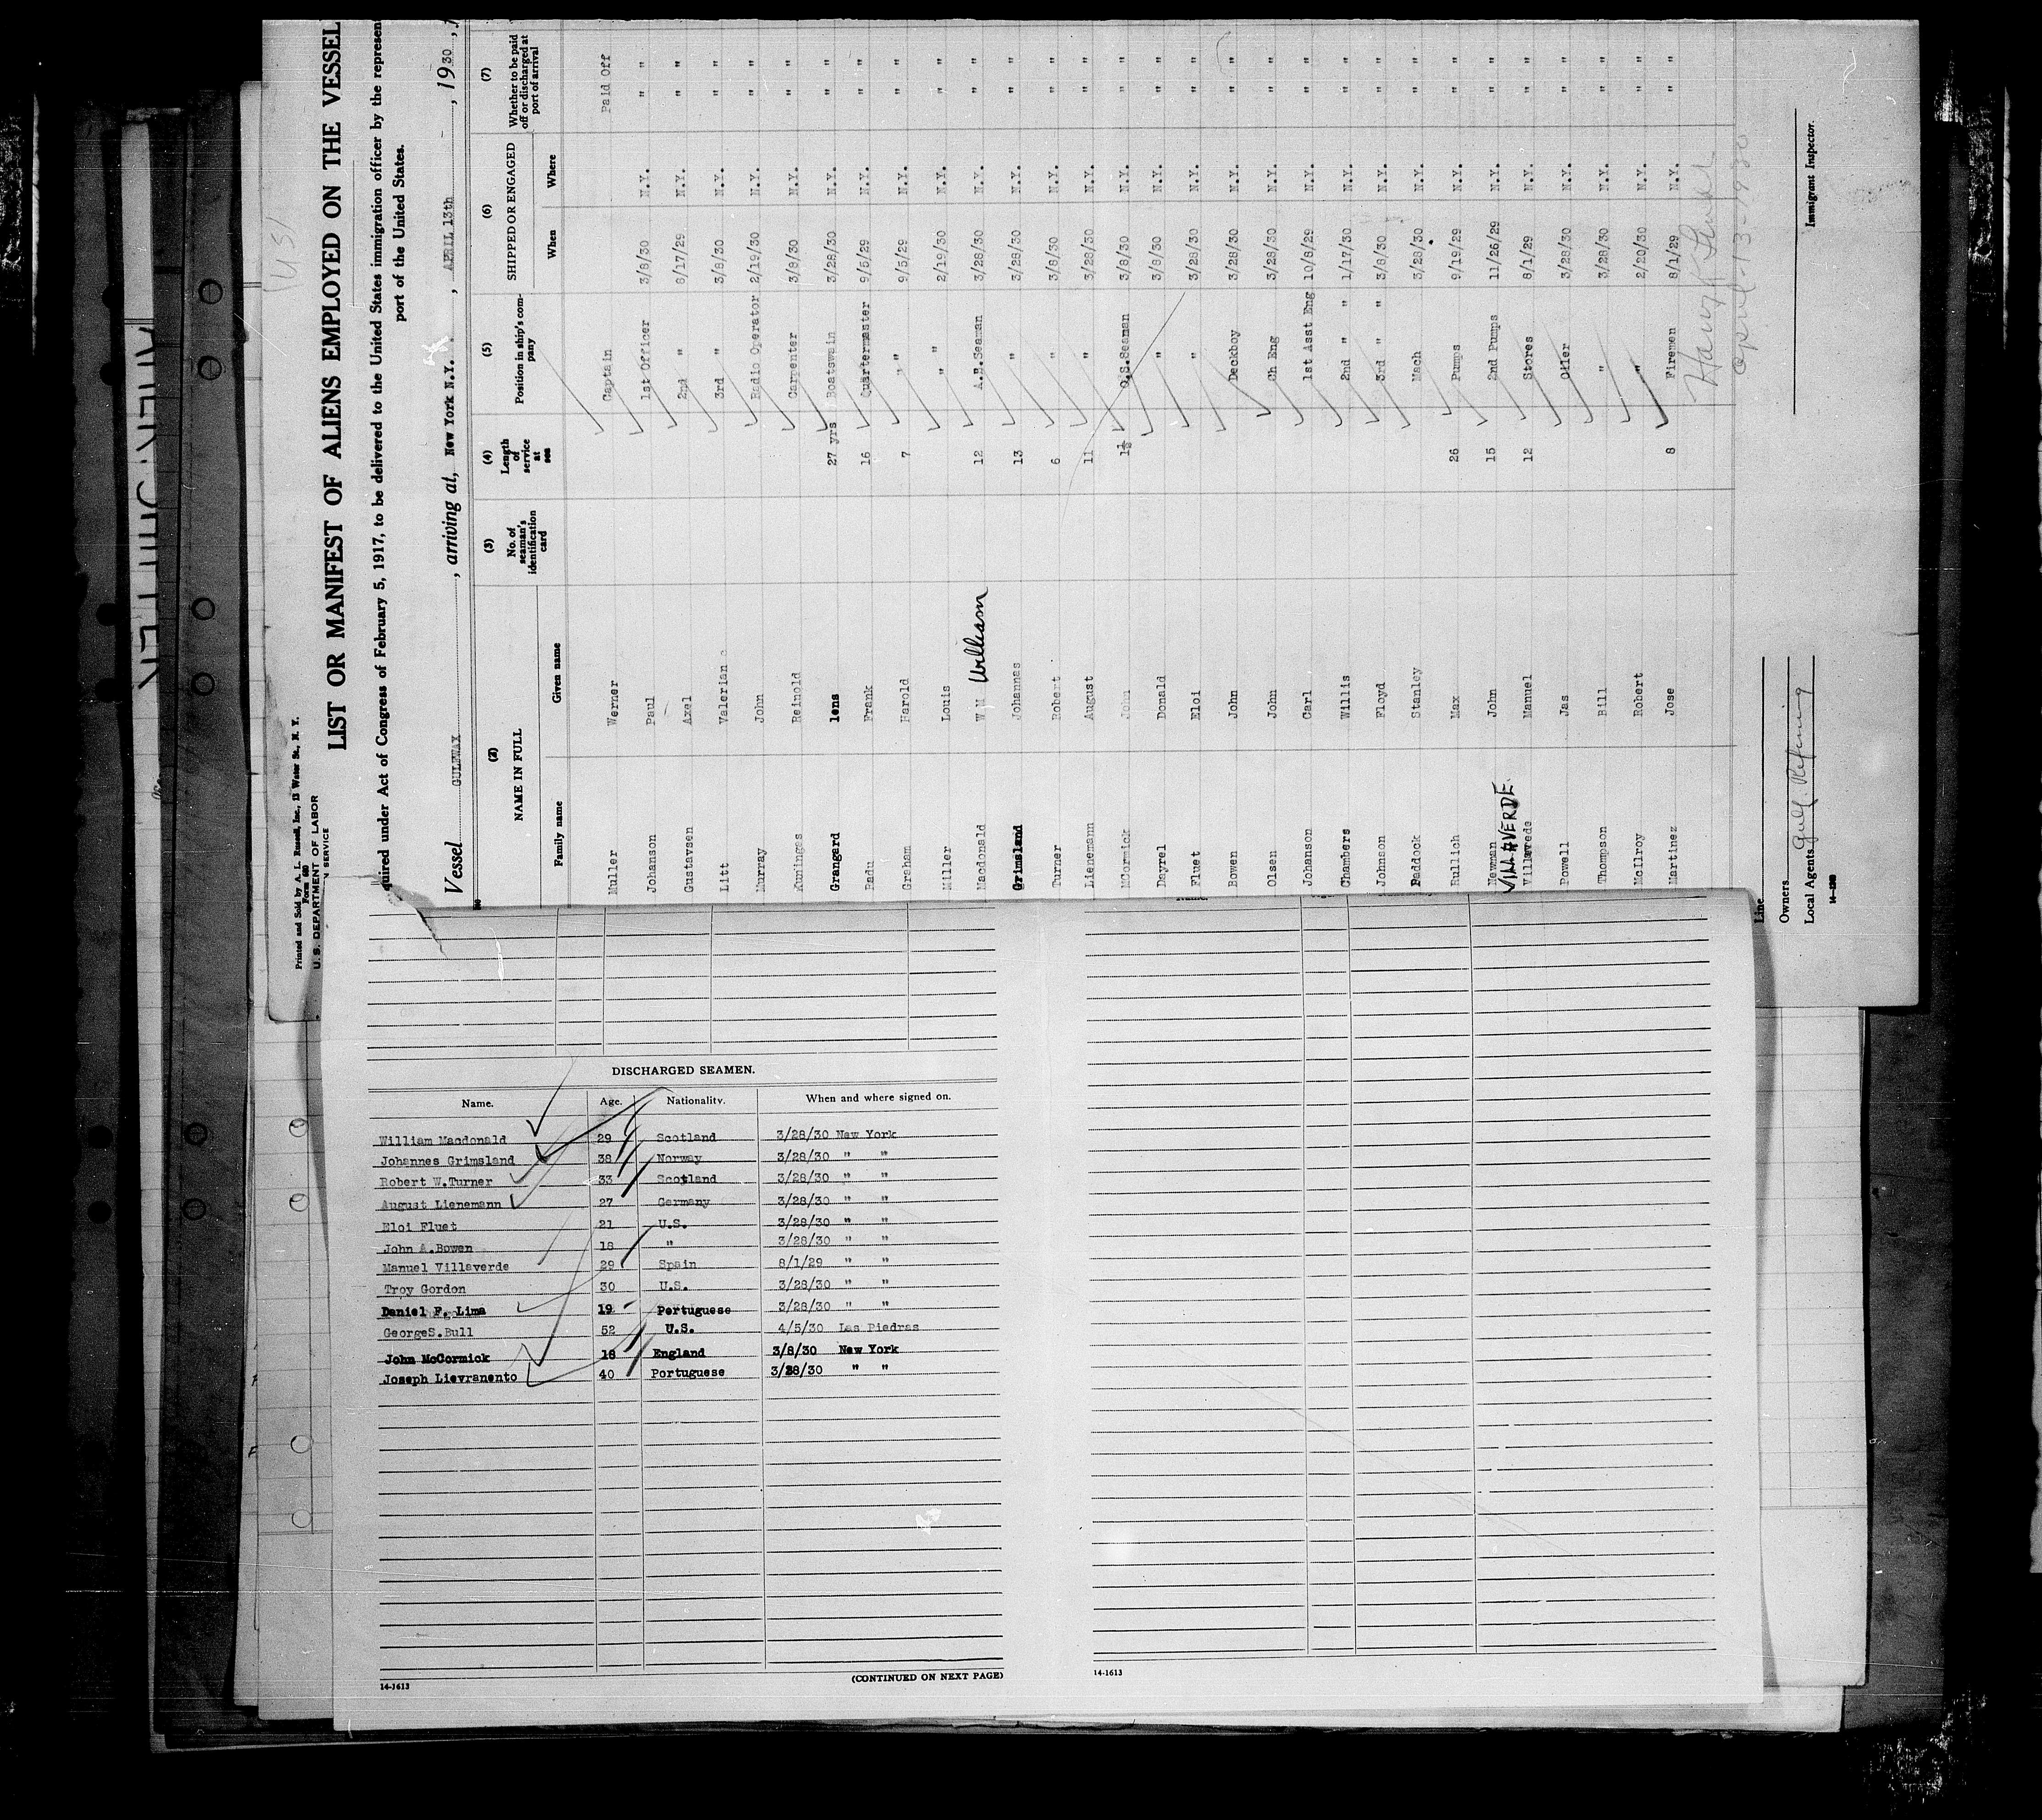 Printed and Sold by A. L. Russell, Inc., 13 Water St., N. Y.
Form 680
U. S. DEPARTMENT OF LABOR
N SERVICE
LIST OR MANIFEST OF ALIENS EMPLOYED ON THE VESSEL
quired under Act of Congress of February 5, 1917, to be delivered to the United States immigration officer by the represen
port of the United States.
Vessel GULFWAX, arriving at, New York N.Y., APRIL 13th, 1930,
(2) (3) (4) (5) (6) (7)
NAME IN FULL No. of seaman's identification card Length of service at sea Position in ship's company SHIPPED OR ENGAGED Whether to be paid off or discharged at port of arrival
Family name Given name When Where
Muller Werner Captain Paid Off
Johanson Paul 1st Officer 3/8/30 N.Y. " "
Gustavsen Axel 2nd " 8/17/29 N.Y. " "
Litt Valerian 3rd " 3/8/30 N.Y. " "
Murray John Radio Operator 2/19/30 N.Y. " "
Kuningas Reinold Carpenter 3/8/30 N.Y. " "
Grangard lens 27 yrs Boatswain 3/28/30 N.Y. " "
Radu Frank 16 Quartermaster 9/5/29 N.Y. " "
Graham Harold 7 " 9/5/29 N.Y. " "
Miller Louis " 2/19/30 N.Y. " "
Macdonald W.M William 12 A.B.Seaman 3/28/30 N.Y. " "
Grimsland Johannas 13 " 3/28/30 N.Y. " "
Turner Robert 6 " 3/8/30 N.Y. " "
Lienemann August 11 " 3/28/30 N.Y. " "
MCormick John 1½ O.S.Seaman 3/8/30 N.Y. " "
Dayrel Donald " 3/8/30 N.Y. " "
Fluet Eloi " 3/28/30 N.Y. " "
Bowen John Deckboy 3/28/30 N.Y. " "
Olsen John Ch Eng 3/28/30 N.Y. " "
Johanson Carl 1st Ast Eng 10/8/29 N.Y. " "
Chambers Willis 2nd " " 1/17/30 N.Y. " "
Johnson Floyd 3rd " " 3/8/30 N.Y. " "
Paddock Stanley Mach 3/28/30 N.Y. " "
Rullich Max 26 Pumps 9/19/29 N.Y. " "
Newman John 15 2nd Pumps 11/26/29 N.Y. " "
VILLAVERDE
Manuel 12 Stores 8/1/29 N.Y. " "
Powell Jas Oiler 3/28/30 N.Y. " "
Thompson Bill " 3/28/30 N.Y. " "
McIlroy Robert " 2/20/30 N.Y. " "
Martinez Jose 8 Firemen 8/1/29 N.Y. " "
April-13-1930
Immigrant Inspector.
Line
Owners
Local Agents Gulf Refining
DISCHARGED SEAMEN.
Name. Age. Nationality. When and where signed on.
William Macdonald 29 Scotland 3/28/30 New York
Johannes Grimsland 38 Norway 3/28/30 " "
Robert W.Turner 33 Scotland 3/28/30 " "
August Lienemann 27 Germany 3/28/30 " "
Eloi Fluet 21 U.S. 3/28/30 " "
John A.Bowen 18 " 3/28/30 " "
Manuel Villaverde 29 Spain 8/1/29 " "
Troy Gordon 30 U.S. 3/28/30 " "
Daniel F. Lima 19 Portuguese 3/28/30 " "
GeorgeS.Bull 52 U.S. 4/5/30 Las Piedras
John McCormick 18 England 3/8/30 New York
Joseph Lievranento 40 Portuguese 3/28/30 " "
(CONTINUED ON NEXT PAGE)
14-1613
14-1613